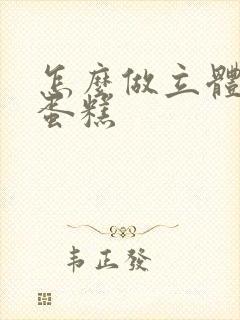 怎麼做立體
蛋糕
韦正發